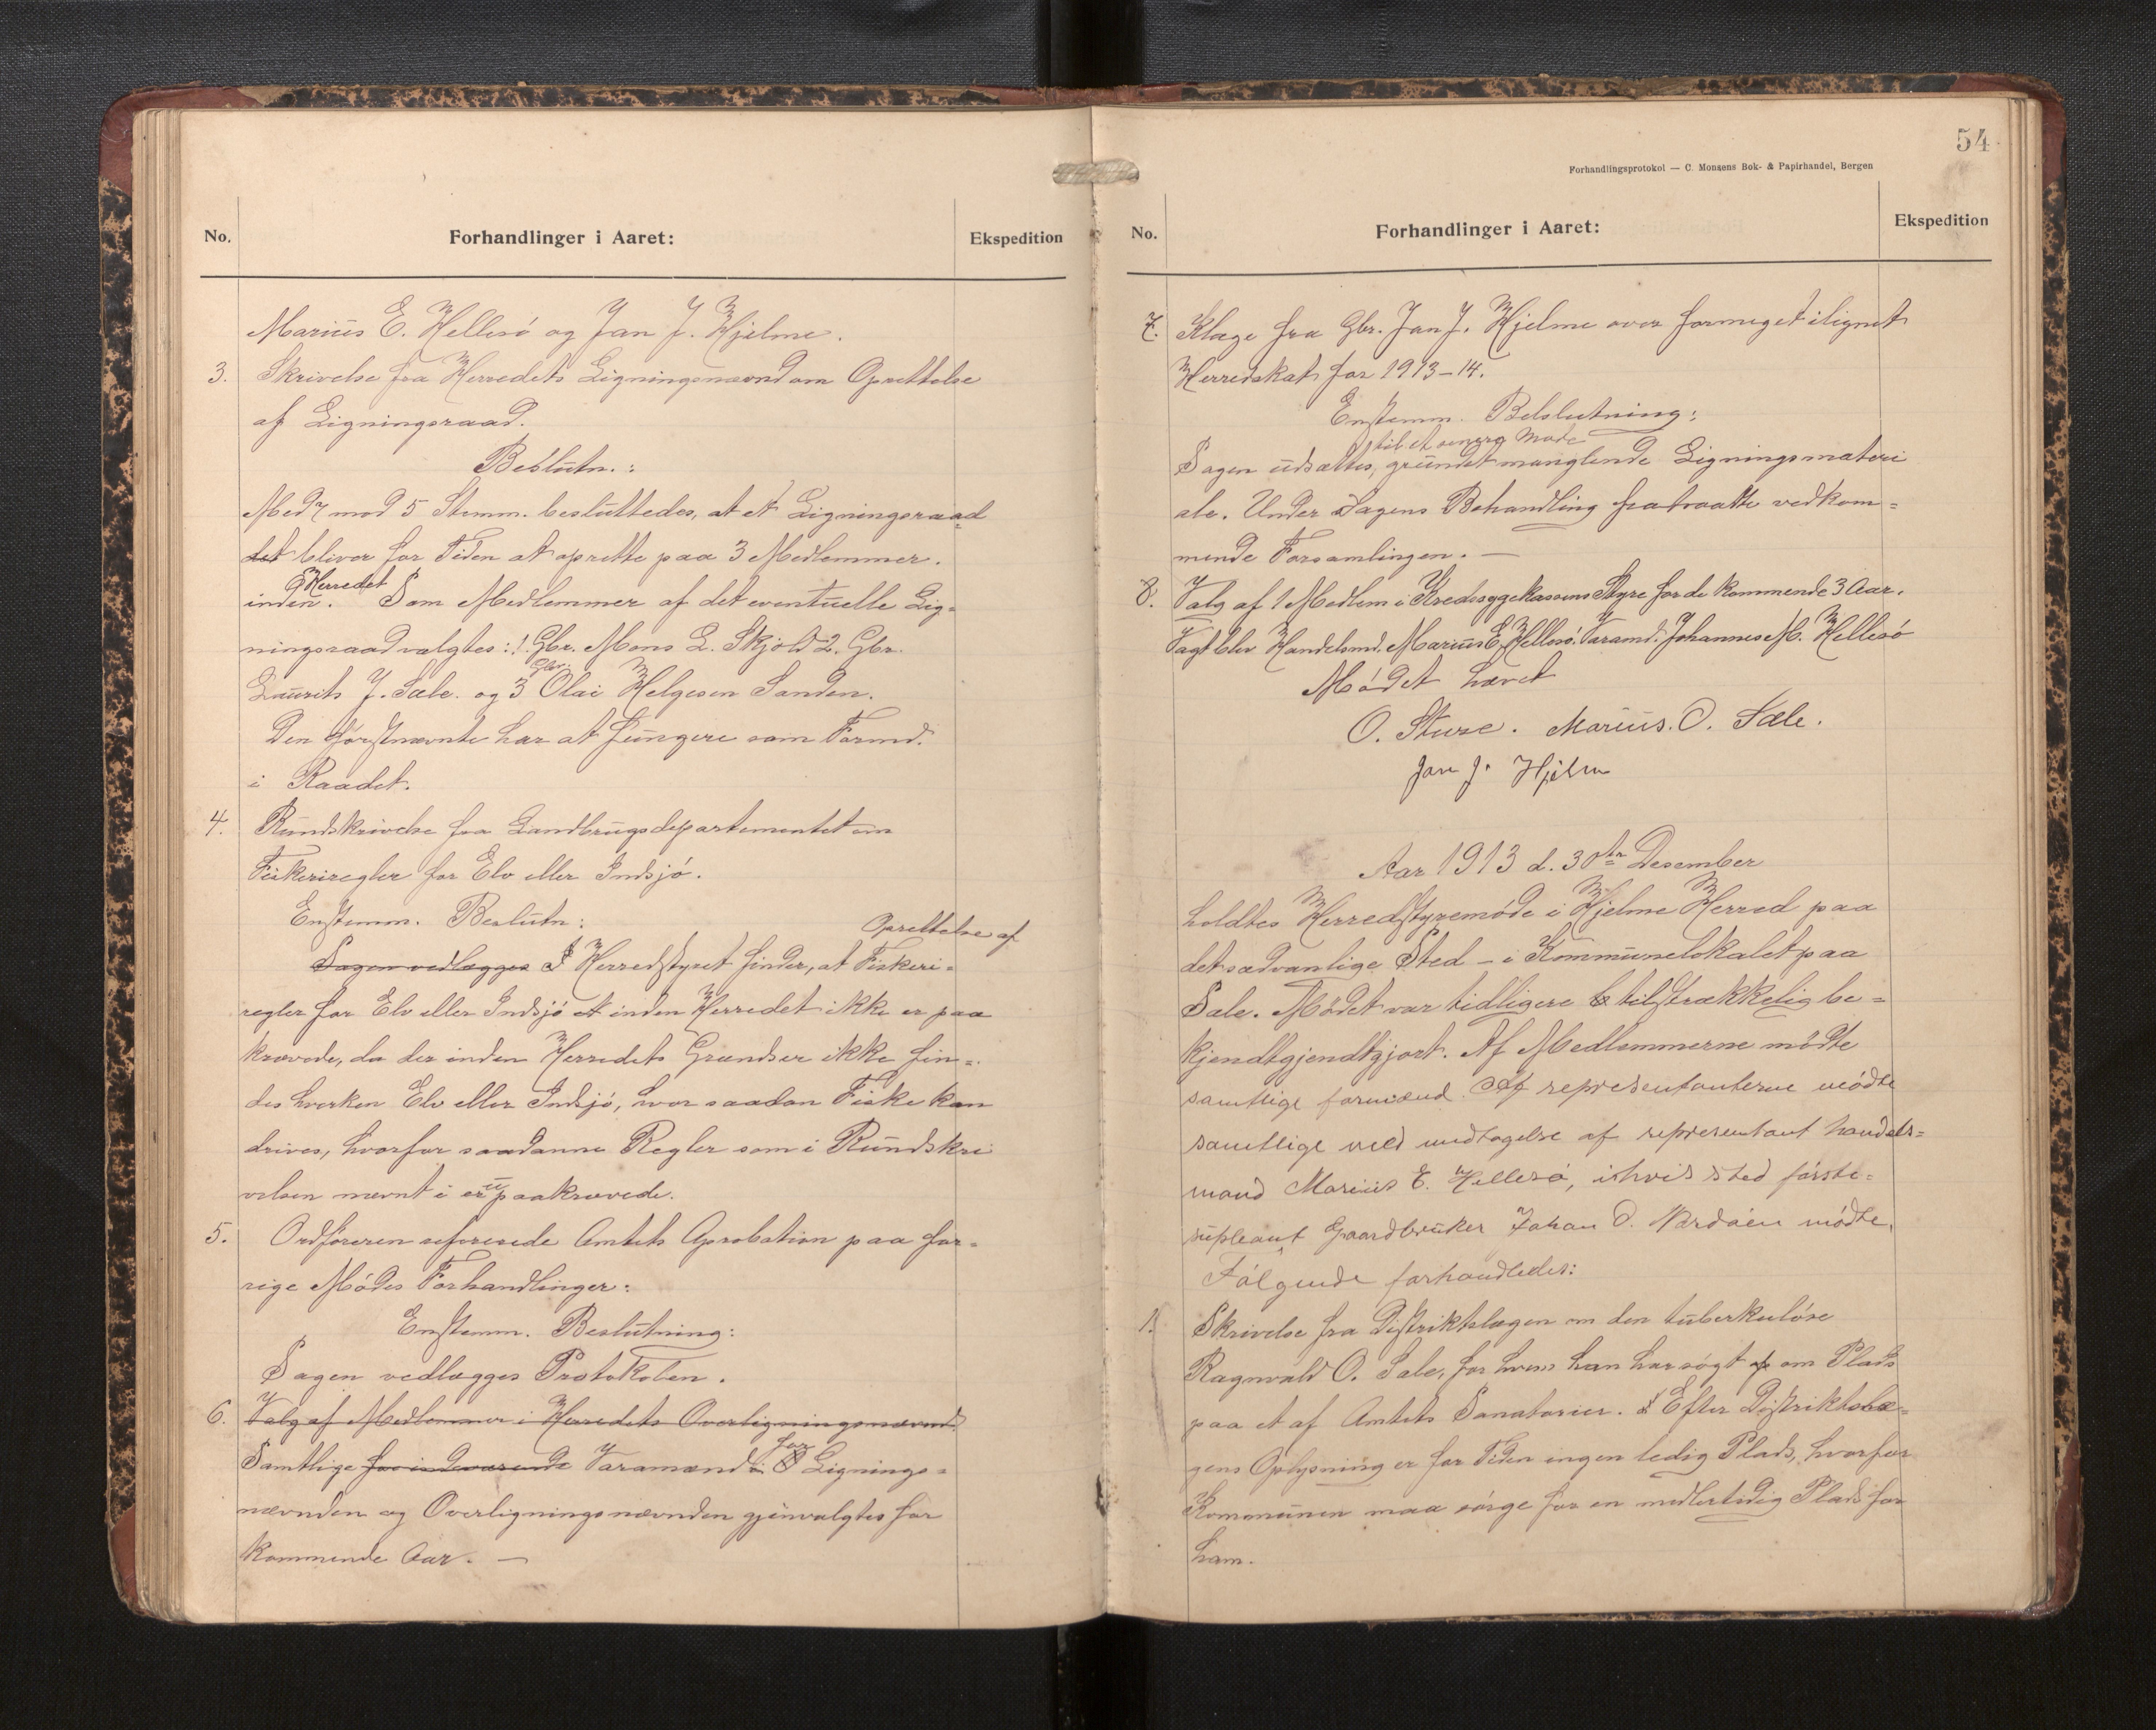 No.
Forhandlinger i Aaret:
Ekspedition
Marius E. Hellesö og Jan J. Hjelme.
3. Skrivelse fra Herredets Ligningsnævnd om Oprettelse
af Ligningsraad.
Beslutn.:
Med 7 mod 5 Stemm. besluttedes, at et Ligningsraad
det bliver for Tiden at oprette paa 3 Medlemmer.
inden Herredet. Som Medlemmer af det eventuelle Lig-
ningsraad valgtes: 1. Gbr. Mons L. Skjold 2. Gbr.
Laurits J. Sæle. og 3 Gbr. Olai Helgesen Sanden.
Den förstnævnte har at fungere som Formd.
i Raadet.
4. Rundskrivelse fra Landbrugsdepartementet om
Fiskeriregler for Elv eller Indsjö.
Enstemm. Beslutn:
Sagen vedlægges Herredstyret finder, at Oprettelse af Fiskeri-
regler for Elv eller Indsjö et inden Herredet ikke er paa
krævede, da der inden Herredets Grændser ikke fin-
des hverken Elv eller Indsjö, hvor saadan Fiske kan
drives, hvorfor saadanne Regler som i Rundskri
velsen nævnt i er paakrævede.
5. Ordföreren refererede Amtets Aprobation paa for-
rige Mödes Forhandlinger:
Enstemm. Beslutning:
Sagen vedlægges Protokolen.
6. Valg af Medlemmer i Herredets Overligningsnævnd.
Samtlige Varamænd for Lignings-
nævnden og Overligningsnævnden gjenvalgtes for
kommende Aar. —
54
Forhandlingsprotokol — C. Monsens Bok- & Papirhandel, Bergen
No.
Forhandlinger i Aaret:
Ekspedition
7. Klage fra Gbr. Jan J. Hjelme over formeget ilignet
Herredskat for 1913–14.
Enstemm. Belslutning:
Sagen udsættes, til et senere Möde grundet manglende Ligningsmateri
ale. Under Sagens Behandling fratraatte vedkom-
mende Forsamlingen. —
8. Valg af 1 Medlem i Kredssygekassens Styre for de kommende 3 Aar.
Vagt blev Handelsmd. Marius E. Hellesö. Varamd. Johannes M. Hellesö
Mödet hævet
O. Sture. Marius. O. Sæle.
Jan J. Hjelm
Aar 1913 d. 30te Desember
holdtes Herredstyremöde i Hjelme Herred paa
det sædvanlige Sted – i Kommunelokalet paa
Sæle. Mödet var tidligere tilstrækkelig be-
kjendtgjendtgjort. Af Medlemmerne mödte
samtlige formænd. Af representanterne mödte
samtlige med undtagelse af representant handels-
mand Marius E. Hellesø, i hvis sted første-
supleant Gaardbruker Johan O. Nordöen mödte.
Følgende forhandledes:
1. Skrivelse fra Distriktslægen om den tuberkulöse
Ragnvald O. Sæle, for hvem han har sögt om Plads
paa et af Amtets Sanatorier. Efter Distriktslæ-
gens Oplysning er for Tiden ingen ledig Plads, hvorfor
Kommunen maa sörge for en midlertidig Plads for
ham.